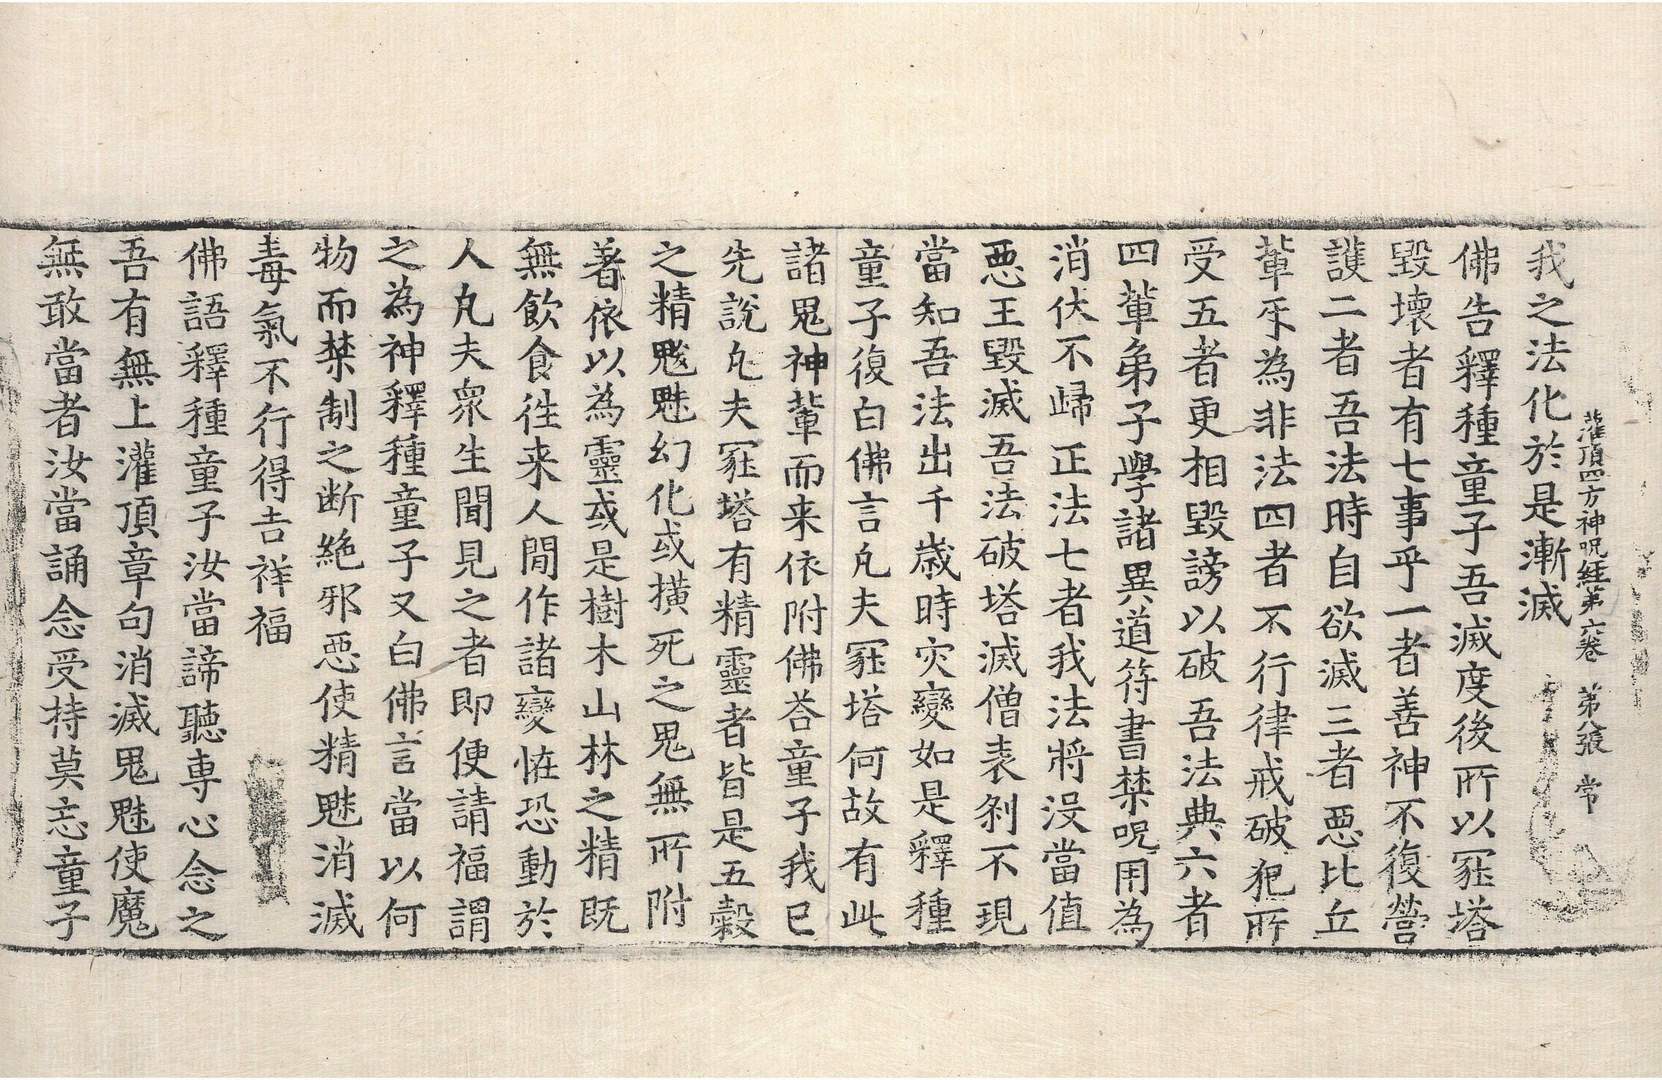 我之法化於是漸滅
灌頂四方神呪經第六卷 第張 常
佛告釋種童子吾滅度後所以冢塔
毀壞者有七事乎一者善神不復營
護二者吾法時自欲滅三者惡比丘
輩乐為非法四者不行律戒破犯所
受五者更相毀謗以破吾法典六者
四輩弟子學諸異道符書禁呪用為
消伏不歸正法七者我法將没當值
惡王毀滅吾法破塔滅僧表刹不現
當知吾法出千歲時灾變如是釋種
童子復白佛言凡夫冢塔何故有此
諸鬼神輩而来依附佛荅童子我已
先說凡夫冢塔有精靈者皆是五穀
之精魃魅幻化或撗死之鬼無所附
著依以為靈或是樹木山林之精既
無飲食徃来人間作諸變恠恐動於
人凡夫衆生聞見之者即便請福謂
之為神釋種童子又白佛言當以何
物而禁制之断絶邪惡使精魅消滅
毒氣不行得吉祥福
佛語釋種童子汝當諦聽専心念之
吾有無上灌頂章句消滅鬼魅使魔
無敢當者汝當誦念受持莫忘童子